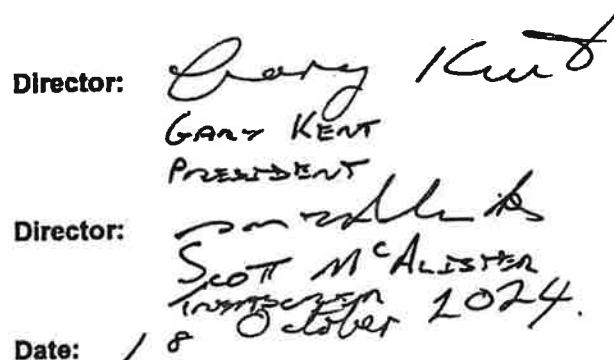 Director: Gary Kent
GARY KENT
PRESIDENT
Director:
SCOTT McALISTER
Date: 18 October 2024.